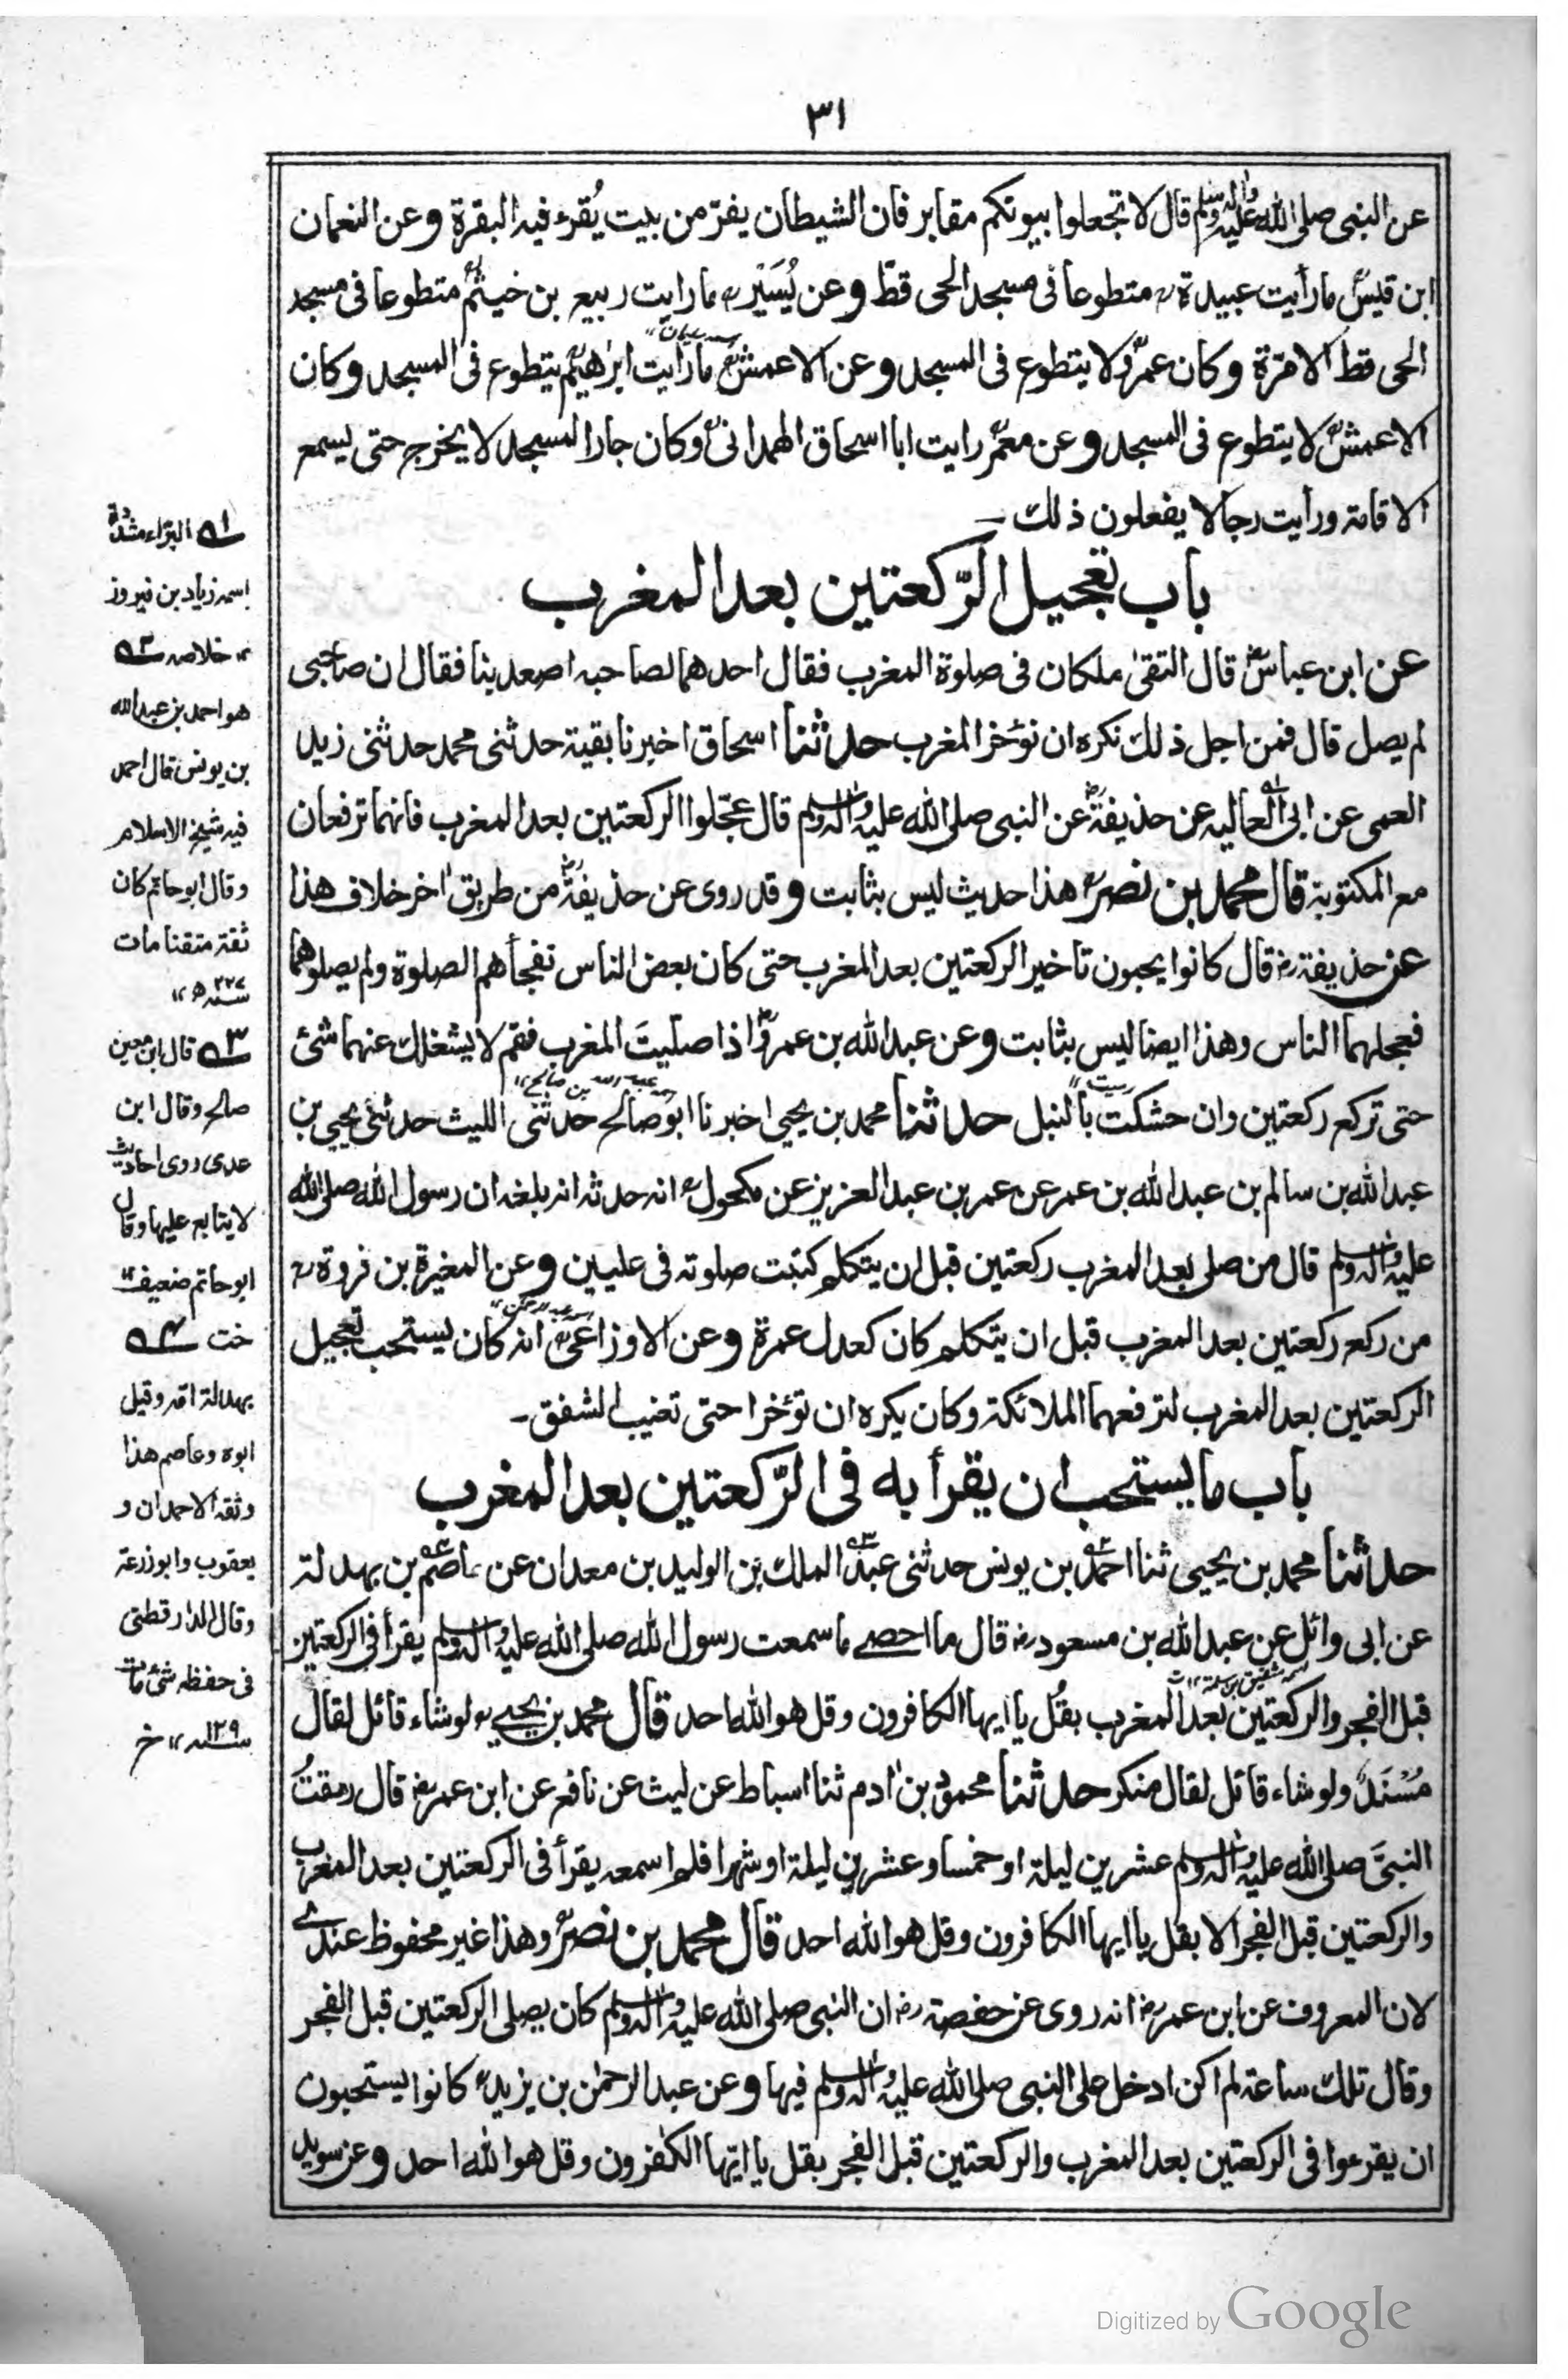 ٣١
عن النبى صلى الله عليه واله وسلم قال لا تجعلوا بيوتكم مقابر فان الشيطان يفرّ من بيت يُقرء فيه البقرة وعن النعمان
ابن قيسؒ ما رأيت عبيدةؒ متطوعا فى مسجد الحى قطّ وعن يُسَيْرؒ ما رايت ربيع بن خيثمؒ متطوعا فى مسجد
الحى قط الا مرّة وكان عمروؒ لا يتطوع فى المسجد وعن الاعمشؒ ما رايت ابرٰهيمؒ يتطوع فى المسجد وكان
الاعمشؒ لا يتطوع فى المسجد وعن معمرؒ رايت ابا اسحاق الهمدانىؒ وكان جارا لمسجد لا يخرج حتى يسمع
الاقامة ورأيت رجالا يفعلون ذلك ــ
باب تعجيل الرّكعتين بعد المغرب
عن ابن عباسؓ قال التقىٰ ملكان فى صلوة المغرب فقال احدهما لصاحبه اصعد بنا فقال ان صاحبى
لم يصل قال فمن اجل ذلك نكره ان نؤخر المغرب حدثنا اسحاق اخبرنا بقية حدثنى محمد حدثنى زيد
العمى عن ابى العاليه عن حذيفةؓ عن النبى صلى الله عليه واله وسلم قال عجّلوا الركعتين بعد المغرب فانهما ترفعان
مع المكتوبة قال محمد بن نصرؒ هذا حديث ليس بثابت وقد روى عن حذيفةؓ من طريق اٰخر خلاف هذا
عن حذيفةؓ قال كانوا يحبون تاخير الركعتين بعد المغرب حتى كان بعض الناس تفجأهم الصلوة ولم يصلوهما
فعجلهما الناس وهذا ايضا ليس بثابت وعن عبد الله بن عمروؓ اذا صليتَ المغرب فقم لا يشغلك عنهما شئ
حتى تركع ركعتين وان حشكت بالنبل حدثنا محمد بن يحيى اخبرنا ابو صالح حدثنى الليث حدثنى يحيى بن
عبد الله بن سالم بن عبد الله بن عمر عن عمر بن عبد العزيز عن مكحولؒ انه حدثه انه بلغه ان رسول الله صلى الله
عليه واله وسلم قال من صلى بعد المغرب ركعتين قبل ان يتكلم كتبت صلوته فى عليين وعن المغيرة بن فروةؒ
من ركع ركعتين بعد المغرب قبل ان يتكلم كان كعدل عمرة وعن الاوزاعىؒ انه كان يستحب تعجيل
الركعتين بعد المغرب لترفعهما الملائكة وكان يكره ان تؤخرا حتى تغيب الشفق ــ
باب ما يستحب ان يقرأ به فى الرّكعتين بعد المغرب
حدثنا محمد بن يحيى ثنا احمد بن يونس حدثنى عبد الملك بن الوليد بن معدان عن عاصم بن بهدلة
عن ابى وائل عن عبد الله بن مسعودؓ قال ما احصے ما سمعت رسول الله صلى الله عليه واله وسلم يقرأ فى الركعتين
اسمه شقيق بن سلمة
قبل الفجر والركعتين بعد المغرب بقُل يا ايها الكافرون وقل هو الله احد قال محمد بن يحيےؒ لو شاء قائل لقال
مُسْنَدٌ ولو شاء قائل لقال منكر حدثنا محمود بن اٰدم ثنا اسباط عن ليث عن نافع عن ابن عمرؓ قال رمقتُ
النبىَّ صلى الله عليه واله وسلم عشرين ليلة او خمسا وعشرين ليلة او شهرا فلم اسمعه يقرأ فى الركعتين بعد المغرب
والركعتين قبل الفجر الا بقل يا ايها الكافرون وقل هو الله احد قال محمد بن نصرؒ وهذا غير محفوظ عندے
لان المعروف عن ابن عمرؓ انه روى عن حفصةؓ ان النبى صلى الله عليه واله وسلم كان يصلى الركعتين قبل الفجر
وقال تلك ساعة لم اكن ادخل على النبى صلى الله عليه واله وسلم فيها وعن عبد الرحمٰن بن يزيدؒ كانوا يستحبون
ان يقرءوا فى الركعتين بعد المغرب والركعتين قبل الفجر بقل يا ايّها الكٰفرون وقل هو الله احد وعن سويد
١ـه البرّاء مشددة
اسمه زياد بن فيروز
١٢ خلاصه ٢ـه
هو احمد بن عبد الله
بن يونس قال احمد
فيه شيخ الاسلام
وقال ابو حاتم كان
ثقة متقنا مات
سنه ٢٢٧ھ ١٢
٣ـه قال ابن معين
صالح وقال ابن
عدى روى احاديث
لا يتابع عليها وقال
ابو حاتم ضعيف ١٢
خت ٤ـه
بهدلة امه وقيل
ابوه وعاصم هذا
وثقه الاحمدان و
يعقوب وابو زرعة
وقال الدارقطنى
فى حفظه شئ مات
سنه ١٢٩ ١٢ خ
Digitized by Google